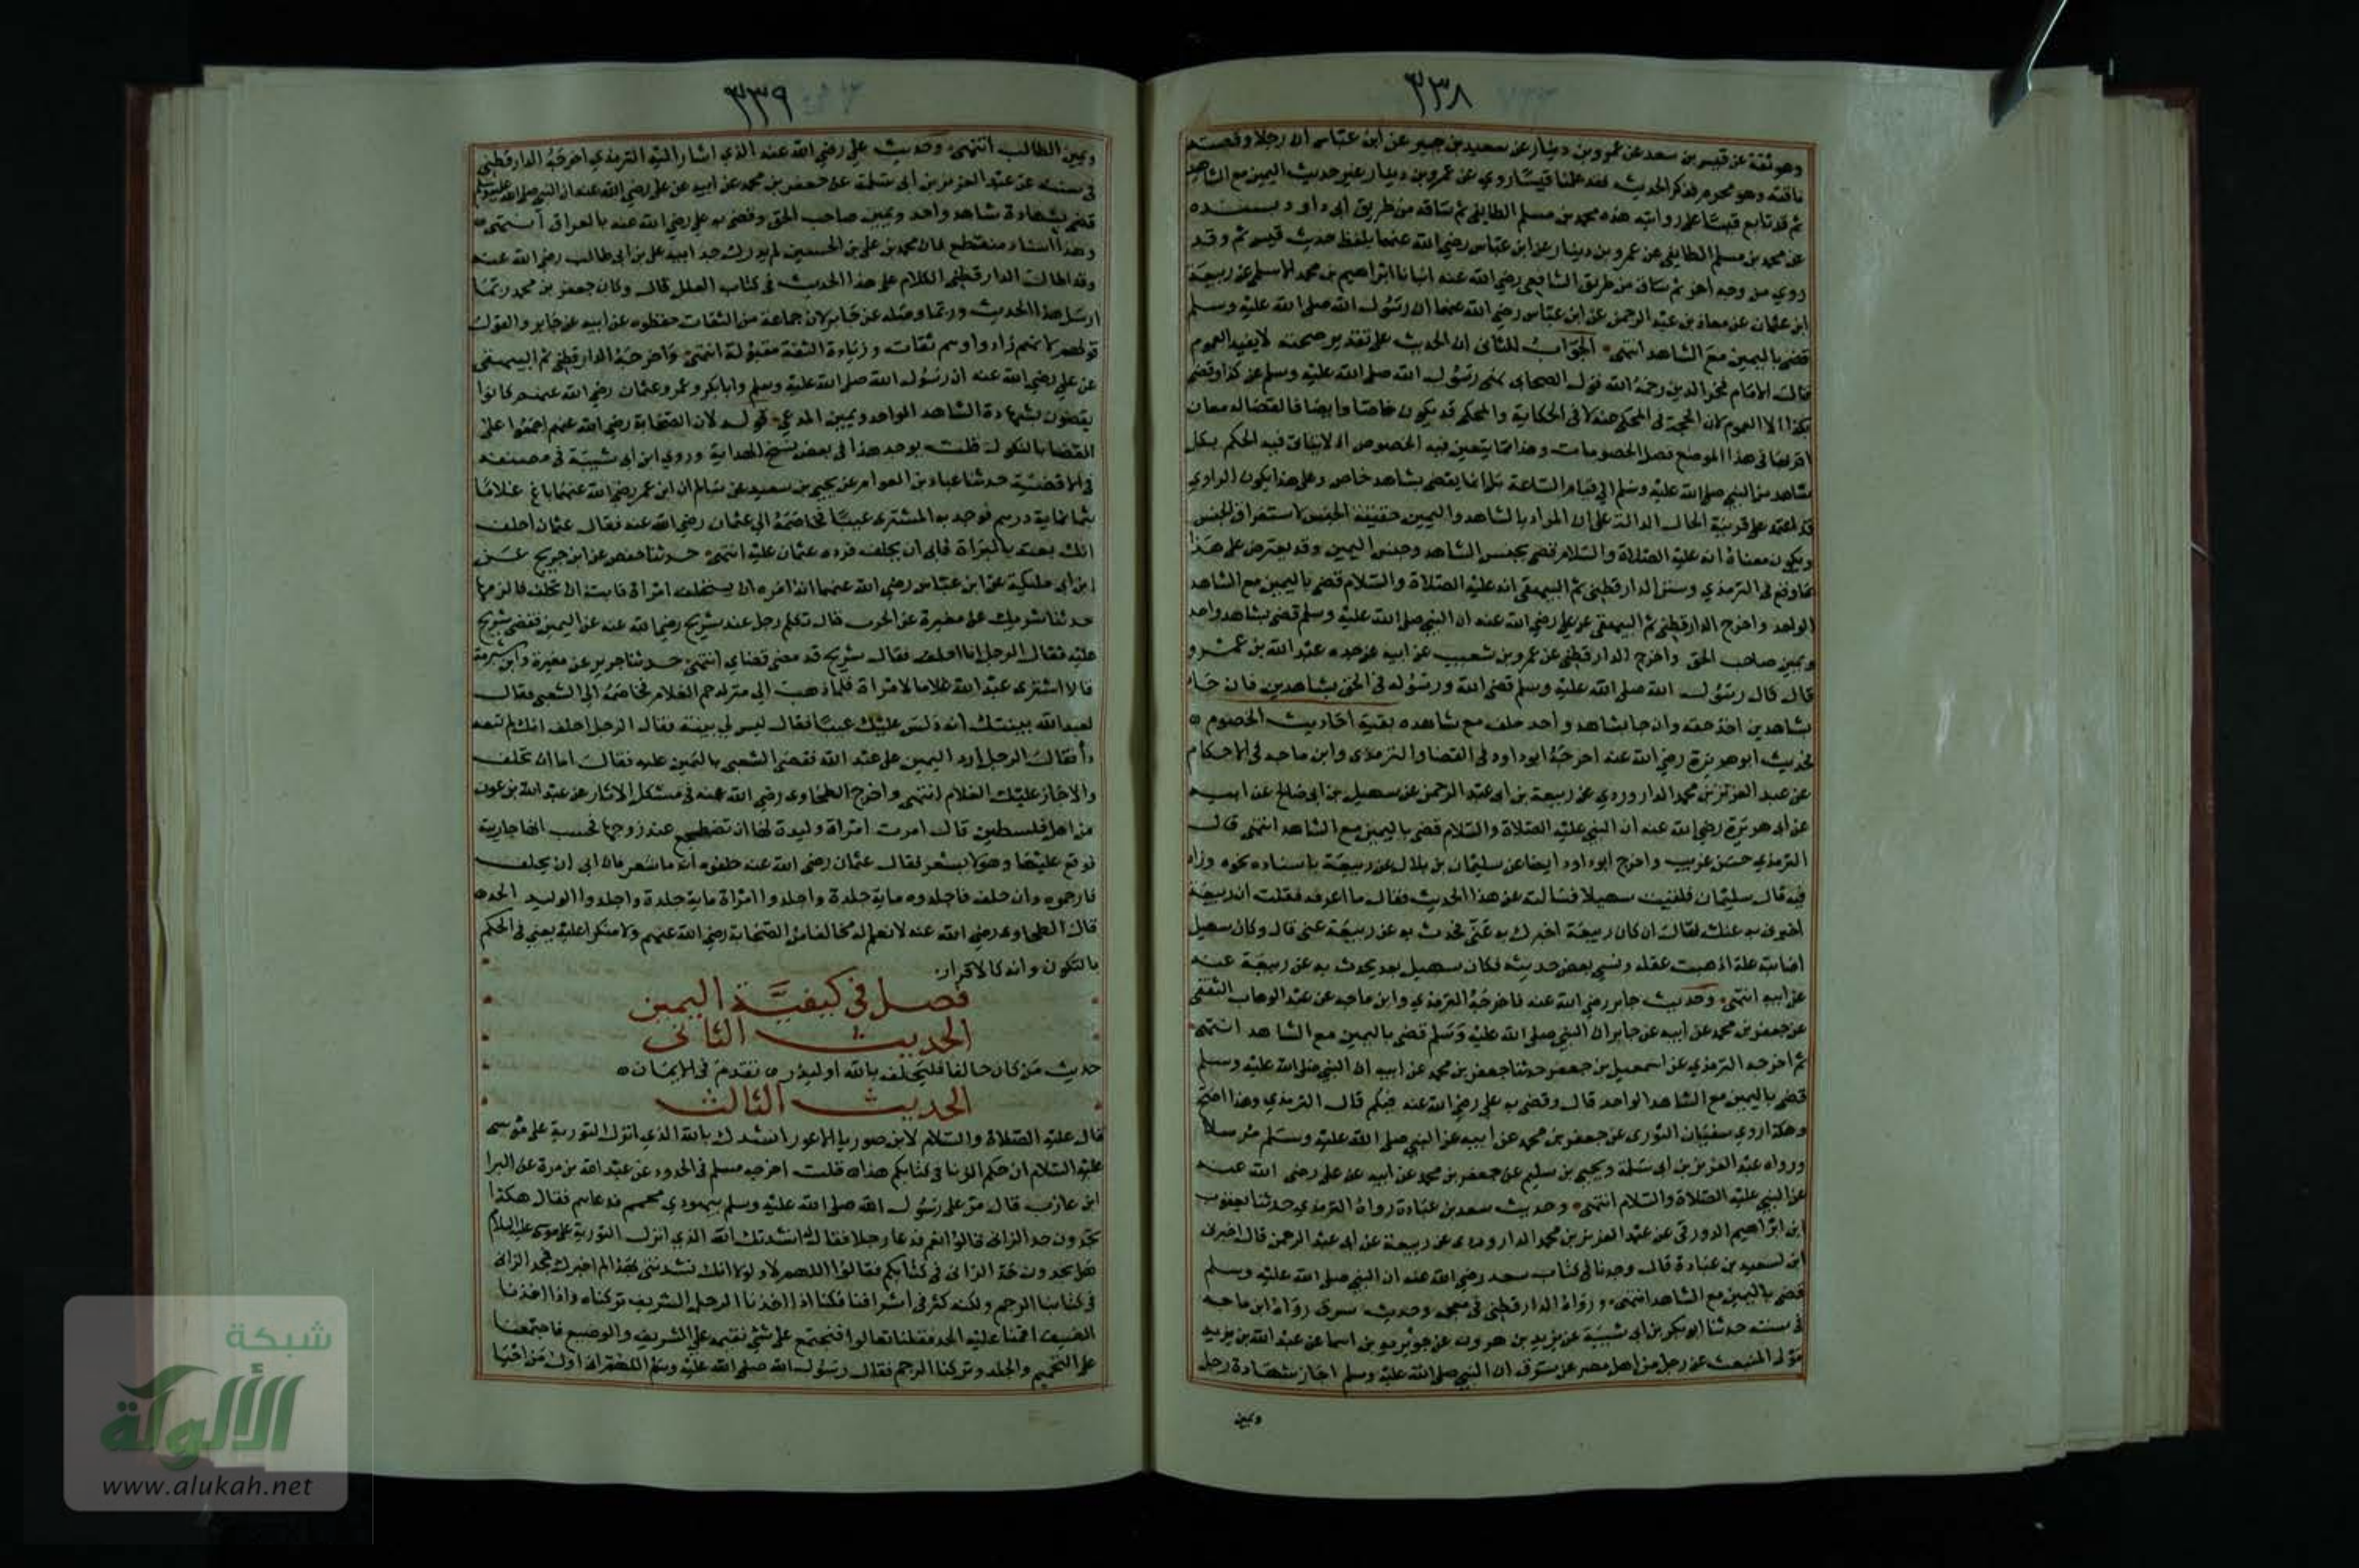 ٣٣٨
وهو ثقة عن قيس بن سعد عن عمرو بن دينار عن سعيد بن جبير عن ابن عباس ان رجلا وقصته
ناقته وهو محرم فذكر الحديث فقد علمنا قيسا روي عن عمرو بن دينار غير حديث اليمين مع الشاهد
ثم قد تابع قيسا على روايته هذه محمد بن مسلم الطايفي ثم ساقه من طريق ابى داود بسنده
عن محمد بن مسلم الطايفي عن عمرو بن دينار عن ابن عباس رضي الله عنهما بلفظ حديث قيس ثم وقد
روي من وجه اخر ثم ساق من طريق الشافعي رضي الله عنه انبانا ابراهيم بن محمد الاسلمي عن ربيعة
ابن عثمان عن معاذ بن عبد الرحمن عن ابن عباس رضي الله عنهما ان رسول الله صلى الله عليه وسلم
قضى باليمين مع الشاهد انتهى الجواب الثانى ان الحديث على تقدير صحته لا يفيد العموم
قال الامام فخر الدين رحمه الله قول الصحابى نهى رسول الله صلى الله عليه وسلم عن كذا وقضى
بكذا لا العموم لان الحجة فى المحكي لا فى الحكاية والمحكي قد يكون خاصا وايضا فالقضا له معان
اقربها فى هذا الموضع فصل الخصومات وهذا مما يتعين فيه الخصوص اذ لا يتاتى فيه الحكم بكل
شاهد من النبي صلى الله عليه وسلم الى قيام الساعة بل انما يقضى بشاهد خاص وعلى هذا يكون الراوي
قد اعتمد على قرينة الحال الدالة على ان المراد بالشاهد واليمين حقيقة الجنس لا استغراق الجنس
ويكون معناه انه عليه الصلاة والسلام قضى بجنس الشاهد وجنس اليمين وقد يعترض على هذا
بما وقع فى الترمذي وسنن الدارقطني ثم البيهقي انه عليه الصلاة والسلام قضى باليمين مع الشاهد
الواحد واخرج الدارقطني ثم البيهقي عن علي رضي الله عنه ان النبي صلى الله عليه وسلم قضى بشاهد واحد
ويمين صاحب الحق واخرج الدارقطني عن عمرو بن شعيب عن ابيه عن جده عبد الله بن عمرو
قال قال رسول الله صلى الله عليه وسلم قضى الله ورسوله فى الحق بشاهدين فان جاء
بشاهدين اخذ حقه وان جا بشاهد واحد حلف مع شاهده بقية احاديث الخصوم
فحديث ابو هريرة رضي الله عنه اخرجه ابو داود فى القضا والترمذى وابن ماجه فى الاحكام
عن عبد العزيز بن محمد الداروردي عن ربيعة بن ابى عبد الرحمن عن سهيل بن ابى صالح عن ابيه
عن ابى هريرة رضي الله عنه ان النبي عليه الصلاة والسلام قضى باليمين مع الشاهد انتهى قال
الترمذي حسن غريب واخرج ابو داود ايضا عن سليمان بن بلال عن ربيعة باسناده نحوه وزاد
فيه قال سليمان فلقيت سهيلا فسالته عن هذا الحديث فقال ما اعرفه فقلت ان ربيعة
اخبرنى به عنك فقال ان كان ربيعة اخبرك به عني فحدث به عن ربيعة عنى قال وكان سهيل
اصابته علة اذهبت عقله ونسي بعض حديثه فكان سهيل بعد يحدث به عن ربيعة عنه
عن ابيه انتهى وحديث جابر رضي الله عنه فاخرجه الترمذي وابن ماجه عن عبد الوهاب الثقفى
عن جعفر بن محمد عن ابيه عن جابر ان النبي صلى الله عليه وسلم قضى باليمين مع الشاهد انتهى
ثم اخرجه الترمذي عن اسمعيل بن جعفر حدثنا جعفر بن محمد عن ابيه ان النبي صلى الله عليه وسلم
قضى باليمين مع الشاهد الواحد قال وقضى به علي رضي الله عنه فيكم قال الترمذي وهذا اصح
وهكذا روي سفيان الثورى عن جعفر بن محمد عن ابيه عن النبي صلى الله عليه وسلم مرسلا
ورواه عبد العزيز بن ابى سلمة ويحيى بن سليم عن جعفر بن محمد عن ابيه عن على رضي الله عنه
عن النبي عليه الصلاة والسلام انتهى وحديث سعد بن عبادة رواه الترمذي حدثنا يعقوب
ابن ابراهيم الدورقى عن عبد العزيز بن محمد الداروردى عن ربيعة عن ابى عبد الرحمن قال اخبرنى
ابن لسعيد بن عبادة قال وجدنا فى كتاب سعد رضي الله عنه ان النبي صلى الله عليه وسلم
قضى باليمين مع الشاهد انتهى ورواه الدارقطني فى وحديث سرق رواه ابن ماجه
فى سننه حدثنا ابو بكر بن ابى شيبة عن يزيد بن هرون عن جويرية بن اسما عن عبد الله بن يزيد
مولى المنبعث عن رجل من اهل مصر عن سرق ان النبي صلى الله عليه وسلم اجاز شهادة رجل
ويمين
٣٣٩
ويمين الطالب انتهى وحديث علي رضي الله عنه الذي اشار اليه الترمذي اخرجه الدارقطني
فى سننه عن عبد العزيز بن ابى سلمة عن جعفر بن محمد عن ابيه عن على رضي الله عنه ان النبي صلى الله عليه وسلم
قضى بشهادة شاهد واحد ويمين صاحب الحق وقضى به علي رضي الله عنه بالعراق انتهى
وهذا اسناد منقطع فان محمد بن علي بن الحسين لم يدرك جد ابيه على بن ابى طالب رضي الله عنه
وقد اطالت الدارقطني الكلام على هذا الحديث فى كتاب العلل قال وكان جعفر بن محمد ربما
ارسل هذا الحديث وربما وصله عن جابر لان جماعة من الثقات حفظوه عن ابيه عن جابر والقول
قولهم لانهم زادوا وهم ثقات وزيادة الثقة مقبولة انتهى واخرجه الدارقطني ثم البيهقى
عن علي رضي الله عنه ان رسول الله صلى الله عليه وسلم وابا بكر وعمر وعثمان رضي الله عنهم كانوا
يقضون بشهادة الشاهد الواحد ويمين المدعي قوله لان الصحابة رضي الله عنهم اجمعوا على
القضا بالنكول قلت يوجد هذا فى بعض نسخ الهداية وروي ابن ابى شيبة فى مصنفه
فى الاقضية حدثنا عباد بن العوام عن يحيى بن سعيد عن سالم ان ابن عمر رضي الله عنهما باع غلاما
بثمانماية درهم فوجد به المشترى عيبا فخاصمه الى عثمان رضي الله عنه فقال عثمان احلف
انك بعته بالبراة فابى ان يحلف فرده عثمان عليه انتهى حدثنا حفص عن ابن جريج عن
ابن ابى مليكة عن ابن عباس رضي الله عنهما انه امره ان يستحلف امراة فابت ان تحلف فالزمها
حدثنا شريك عن مغيرة عن الحرث قال نكل رجل عند شريح رضي الله عنه عن اليمين فقضى شريح
عليه فقال الرجل انا احلف فقال شريح قد مضى قضاي انتهى حدثنا جرير عن مغيرة وابن شبرمة
قالا اشترى عبد الله غلاما لامراة فلما ذهب الى منزله حم الغلام فخاصمه الى الشعبى فقال
لعبد الله بينتك انه دلس عليك عيبا فقال ليس لي بينة فقال الرجل احلف انك لم تبعه
فقال الرجل ارد اليمين على عبد الله فقضى الشعبى باليمين عليه فقال اما ان تحلف
والا جاز عليك الغلام انتهى واخرج الطحاوى رضي الله عنه فى مشكل الاثار عن عبد الله بن عون
من اهل فلسطين قال امرت امراة وليدة لها ان تضطجع عند زوجها فحسب انها جاريته
فوقع عليها وهو لا يشعر فقال عثمان رضي الله عنه حلفوه انه ما شعر فان ابى ان يحلف
فارجموه وان حلف فاجلدوه ماية جلدة واجلدوا امراة ماية جلدة واجلدوا الوليدة الحد
قال الطحاوى رضي الله عنه لا نعلم له مخالفا من الصحابة رضي الله عنهم ولا منكرا عليه يعني فى الحكم
بالنكول وانه كالاقرار
فصل فى كيفية اليمين
الحديث الثانى
حديث من كان حالفا فليحلف بالله او ليذر تقدم فى الايمان
الحديث الثالث
قال عليه الصلاة والسلام لابن صوريا الاعور انشدك بالله الذي انزل التورية على موسى
عليه السلام ان حكم الزنا فى كتابكم هذا قلت اخرجه مسلم فى الحدود عن عبد الله بن مرة عن البرا
ابن عازب قال مر على رسول الله صلى الله عليه وسلم بيهودي محمم فدعاهم فقال هكذا
تجدون حد الزانى قالوا نعم فدعا رجلا فقال انشدتك الله الذي انزل التورية على موسى عليه السلام
هل تجدون حد الزانى فى كتابكم فقالوا اللهم لا ولولا انك نشدتنى بهذا لم اخبرك نجد الزانى
فى كتابنا الرجم ولكنه كثر فى اشرافنا فكنا اذا اخذنا الرجل الشريف تركناه واذا اخذنا
الضعيف اقمنا عليه الحد فقلنا تعالوا فنجتمع على شي نقيمه على الشريف والوضيع فاجتمعنا
على التحميم والجلد وتركنا الرجم فقال رسول الله صلى الله عليه وسلم اللهم انى اول من احيا
شبكة
الألوكة
www.alukah.net